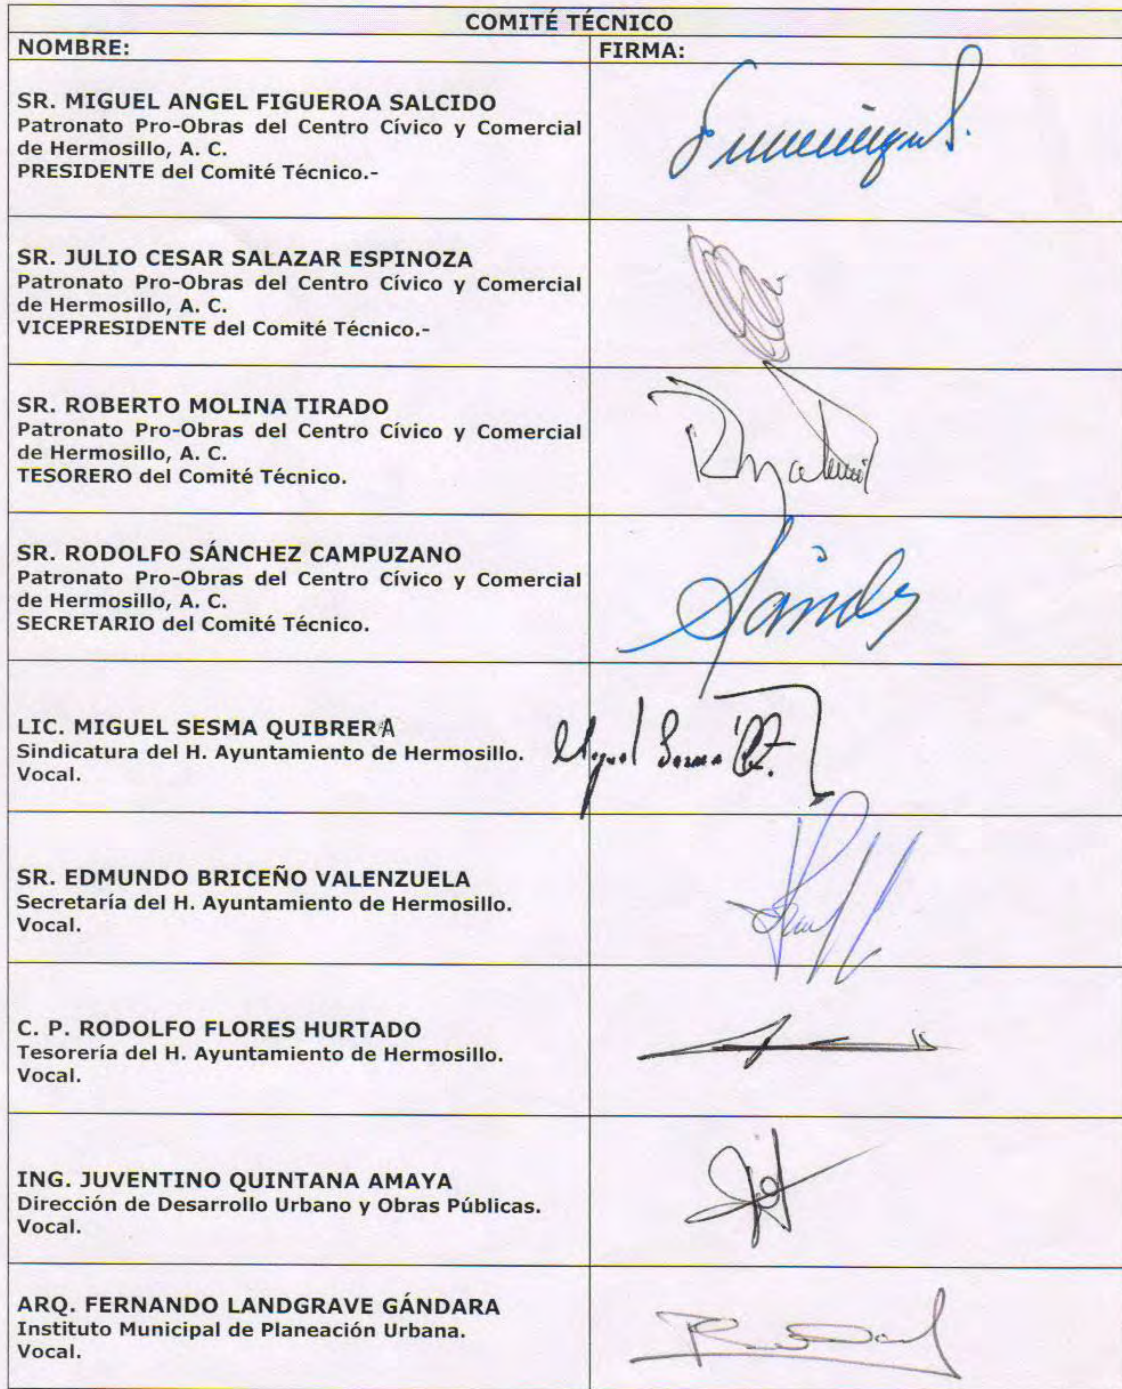 COMITÉ TÉCNICO
NOMBRE: FIRMA:
SR. MIGUEL ANGEL FIGUEROA SALCIDO
Patronato Pro-Obras del Centro Cívico y Comercial
de Hermosillo, A. C.
PRESIDENTE del Comité Técnico.-
SR. JULIO CESAR SALAZAR ESPINOZA
Patronato Pro-Obras del Centro Cívico y Comercial
de Hermosillo, A. C.
VICEPRESIDENTE del Comité Técnico.-
SR. ROBERTO MOLINA TIRADO
Patronato Pro-Obras del Centro Cívico y Comercial
de Hermosillo, A. C.
TESORERO del Comité Técnico.
SR. RODOLFO SÁNCHEZ CAMPUZANO
Patronato Pro-Obras del Centro Cívico y Comercial
de Hermosillo, A. C.
SECRETARIO del Comité Técnico.
LIC. MIGUEL SESMA QUIBRERA
Sindicatura del H. Ayuntamiento de Hermosillo.
Vocal.
Miguel Sesma Q.
SR. EDMUNDO BRICEÑO VALENZUELA
Secretaría del H. Ayuntamiento de Hermosillo.
Vocal.
C. P. RODOLFO FLORES HURTADO
Tesorería del H. Ayuntamiento de Hermosillo.
Vocal.
ING. JUVENTINO QUINTANA AMAYA
Dirección de Desarrollo Urbano y Obras Públicas.
Vocal.
ARQ. FERNANDO LANDGRAVE GÁNDARA
Instituto Municipal de Planeación Urbana.
Vocal.